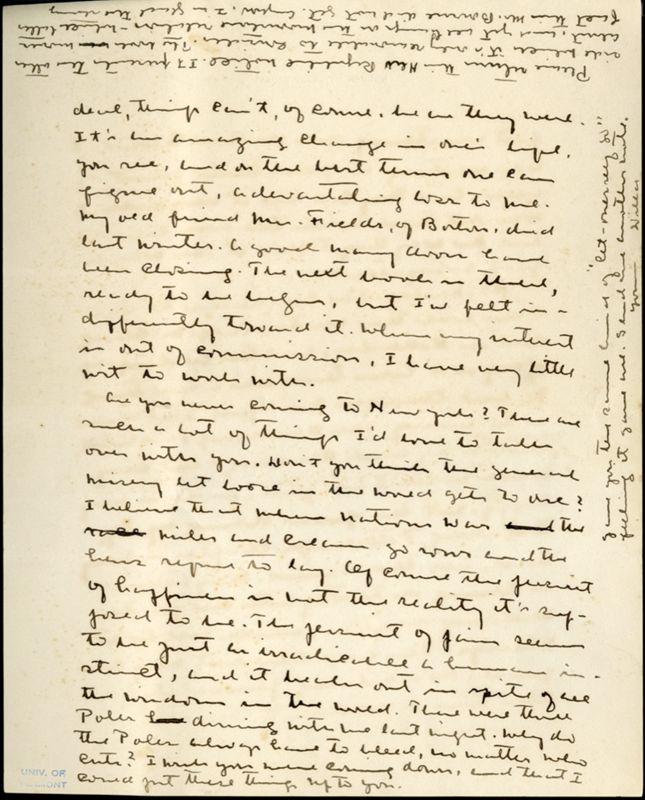 deal, things can't, of course, be as they were.
It's an amazing change in one's life,
you see, and on the best terms one can
figure out, a devastating loss to me.
My old friend Mrs. Fields, of Boston, died
last winter. A good many doors have
been closing. The next book is there,
ready to be begun, but I've felt in-
differently toward it. When my interest
is out of commission, I have very little
wit to work with.
Are you never coming to New York? There are
such a lot of things I'd love to talk
over with you. Don't you think the general
misery let loose in the world gets to one?
I believe that when nations war the
milk and cream go sour and the
hens refuse to lay. Of course the pursuit
of happiness is not the reality it's sup-
posed to be. The pursuit of pain seems
to be just as ineradicable a human in-
stinct, and it breaks out in spite of all
the wisdom in the world. There were three
Poles dining with me last night. Why do
the Poles always have to bleed, no matter who
cuts? I wish you were coming down, and that I
could put these things up to you.
Please return this New Republic notice. It presents the other
side
gave you the same kind of "let-over-easy"
feeling it gave me. Send me another note.
Yours
Willa
UNIV. OF
VERMONT